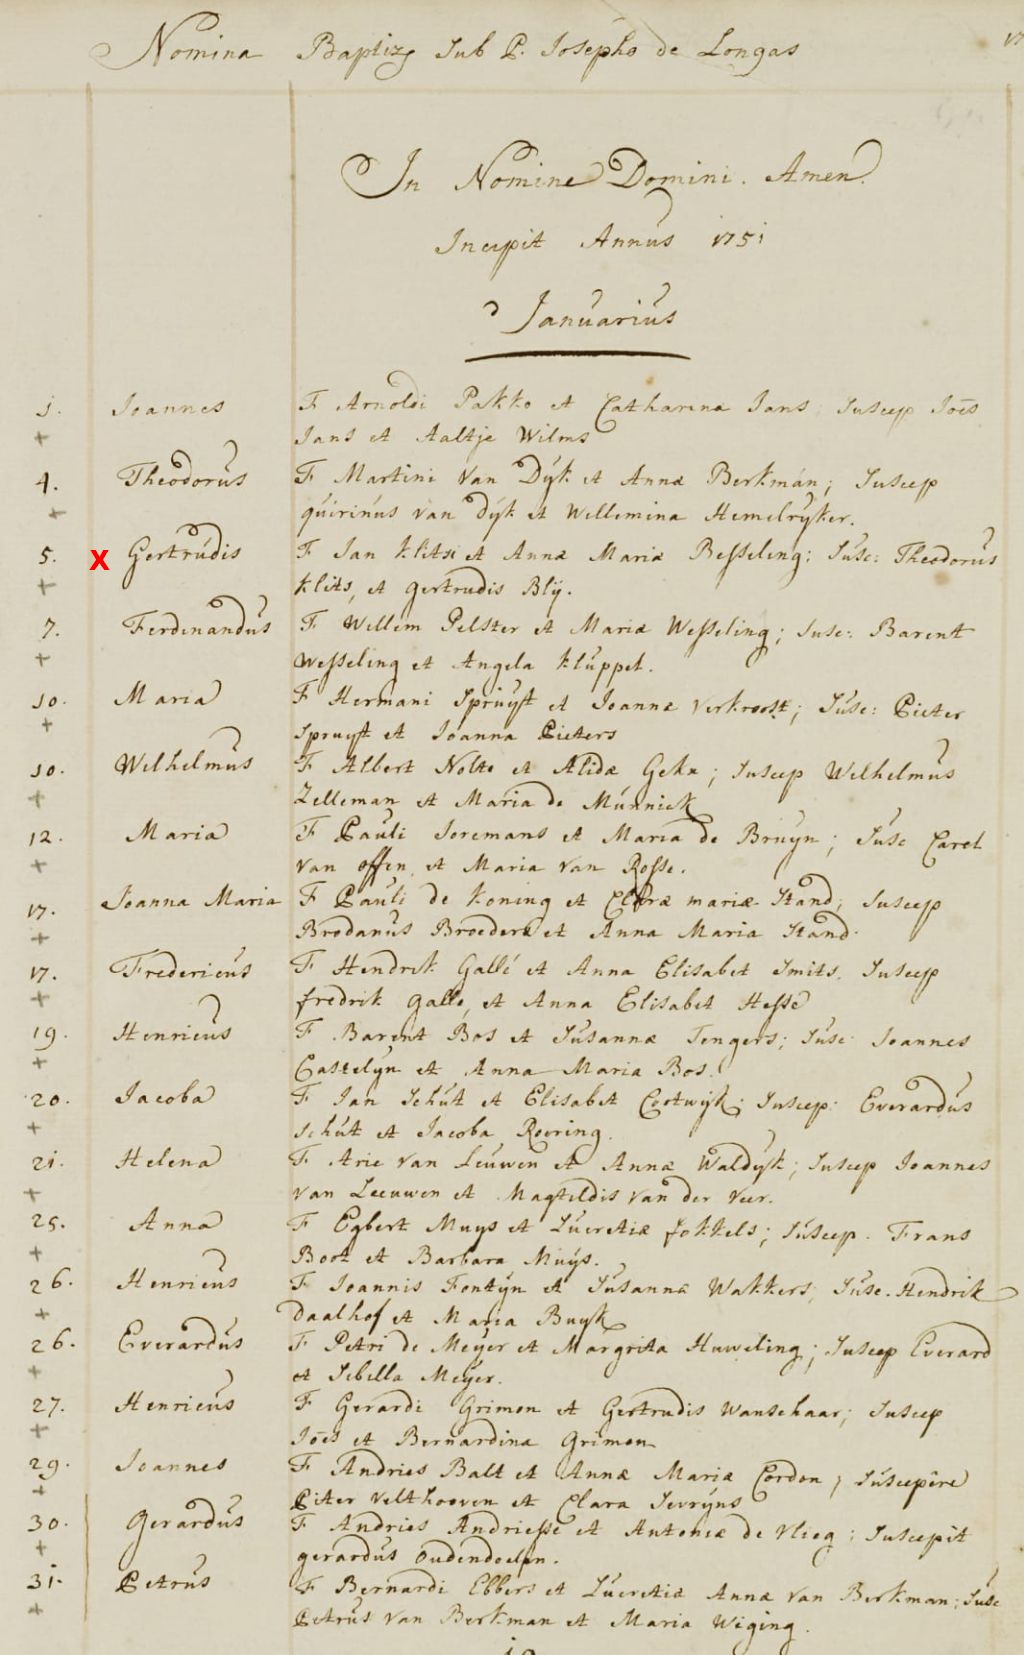 Nomina Baptiz Sub P. Josepho de Longas 17
In Nomine Domini. Amen.
Incipit Annus 1751
Januarius
1. Joannes F Arnoldi Pakko et Catharinæ Jans; Suscep Joēs
+ Jans et Aaltje Wilms
4. Theodorus F Martini Van Dÿk et Annæ Berkman; Suscep
+ quirinus van dÿk et Willemina Hemelrÿker.
5. X Gertrudis F Jan Klitsi et Annæ Mariæ Besseling; Susc: Theodorus
+ Klits, et gertrudis Blÿ.
7. Ferdinandus F Willem Pelster et Mariæ Wesseling; Susc: Barent
+ Wesseling et Angela Kluppel.
10. Maria F Hermani Spruÿt et Joannæ Verkroost; Susc: Pieter
+ Spruyt et Joanna Pieters
10. Wilhelmus F Albert Nolte et Alidæ Geke; Suscep Wilhelmus
+ Zelleman et Maria de Munnick
12. Maria F Pauli Joremans et Maria de Bruÿn; Susc Carel
+ van offen, et Maria van Rosse.
17. Joanna Maria F Pauli de Koning et Claræ mariæ Stand; Suscep
+ Brodanus Broedere et Anna Maria Stand.
17. Fredericus F Hendrik Gallé et Anna Elisabet Smits. Suscep
+ fredrik Galle, et Anna Elisabet Hesse
19. Henricus F Barent Bos et Susannæ Tengers; Susc Joannes
+ Castelÿn et Anna Maria Bos.
20. Jacoba F Jan Schut et Elisabet Costwÿk; Suscep: Everardus
+ schut et Jacoba Roering.
21. Helena F Arie van Leuwen et Annæ Waldÿk; Suscep Joannes
+ van Leeuwen et Magteldis van der Veer.
25. Anna F Egbert Muys et Lucretiæ fokkels; Suscep. Frans
+ Boot et Barbara Muÿs.
26. Henricus F Joannis Fontÿn et Susanna Wakkers; Susc. Hendrik
+ Daalhof et Maria Buyk
26. Everardus F Petri de Meÿer et Margrita Huweling; Suscep Everard
+ et Sibella Meÿer.
27. Henricus F Gerardi Grimon et Gertrudis Wanschaar; Suscep
+ Joēs et Bernardina Grimon
29. Joannes F Andries Balt et Annæ Mariæ Cordon; Suscepêre
+ Piter Velthooven et Clara Sevrÿns
30. Gerardus F Andries Andriesse et Antoniæ de Vlieg; Suscepit
+ gerardus Oudendoelen.
31. Petrus F Bernardi Ebbers et Lucretiæ Annæ van Berkman; Susc
+ Petrus van Berkman et Maria Wiging.